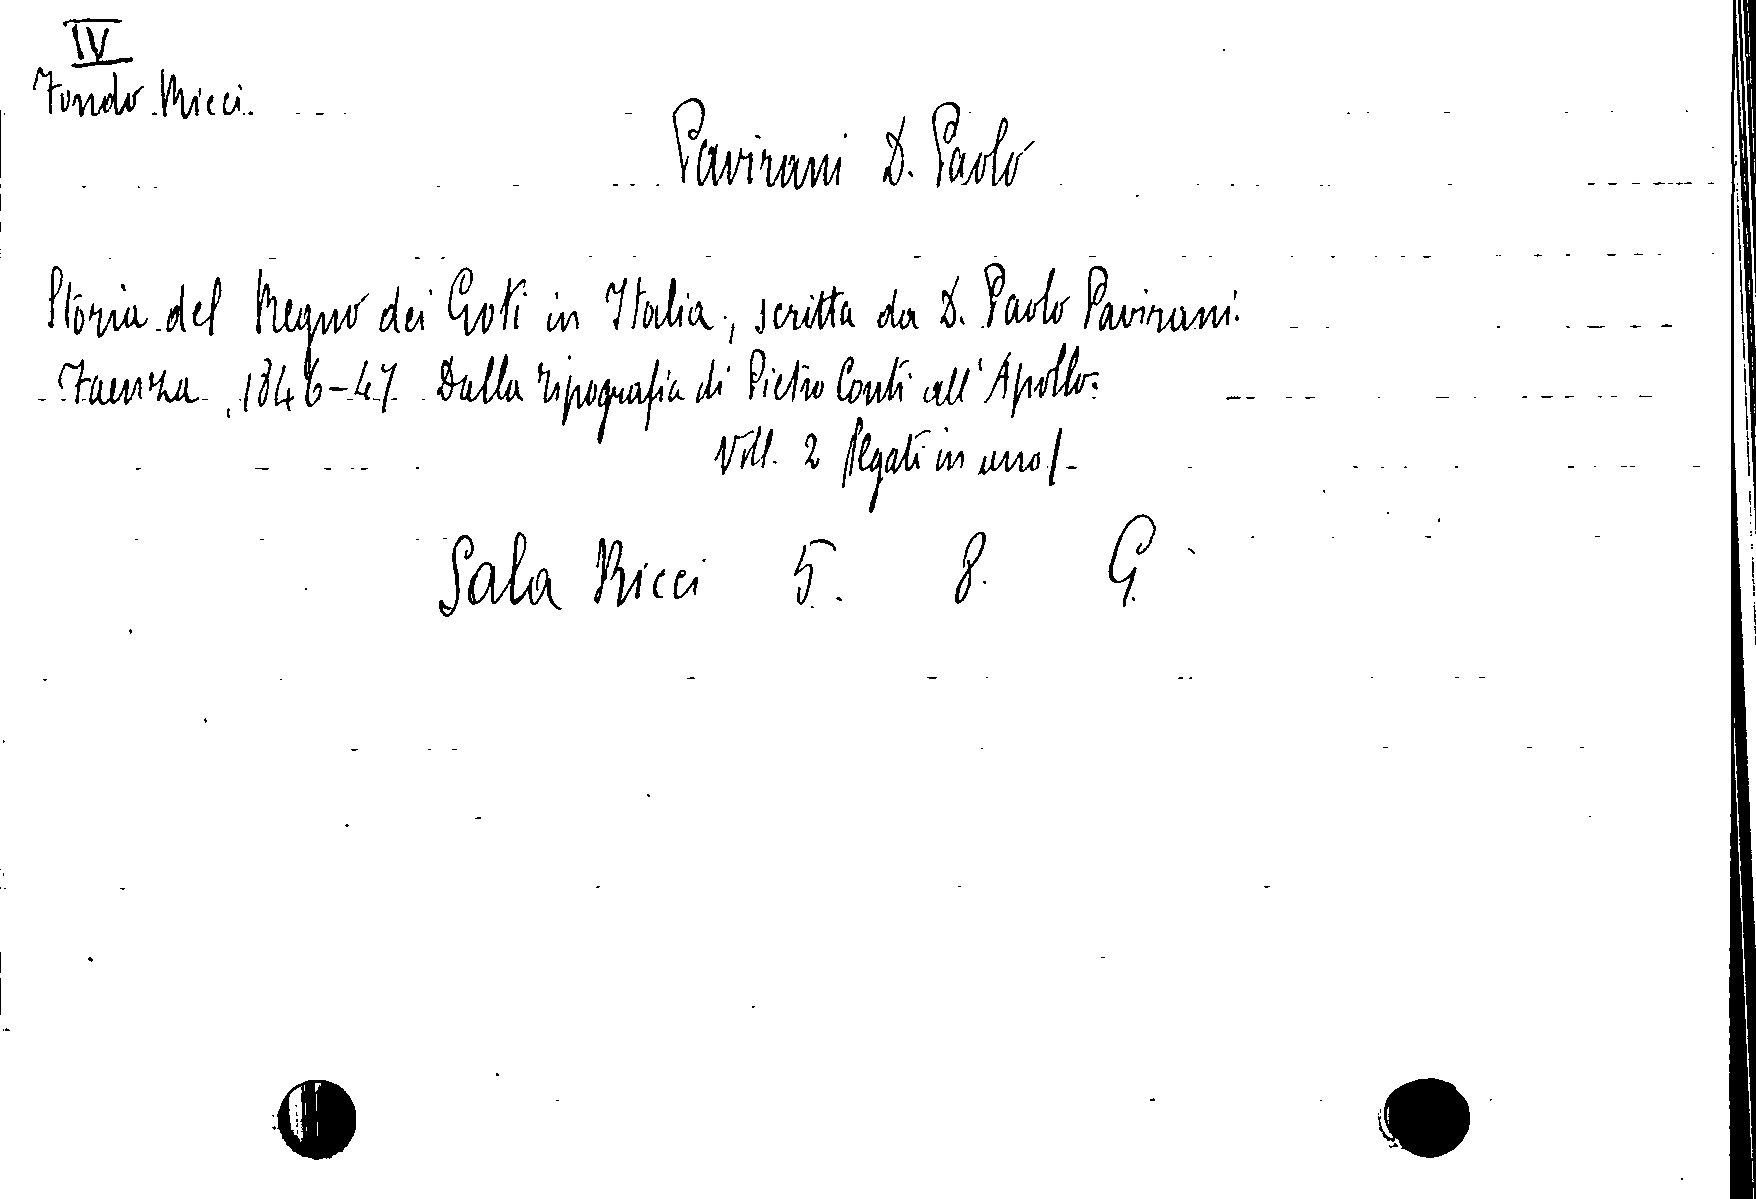 IV
Fondo Ricci.
Pavirani D. Paolo
Storia del Regno dei Goti in Italia, scritta da D. Paolo Pavirani.
Faenza, 1846-47 Dalla Tipografia di Pietro Conti all'Apollo.
Voll. 2 (legati in uno)
Sala Ricci 5. 8. G